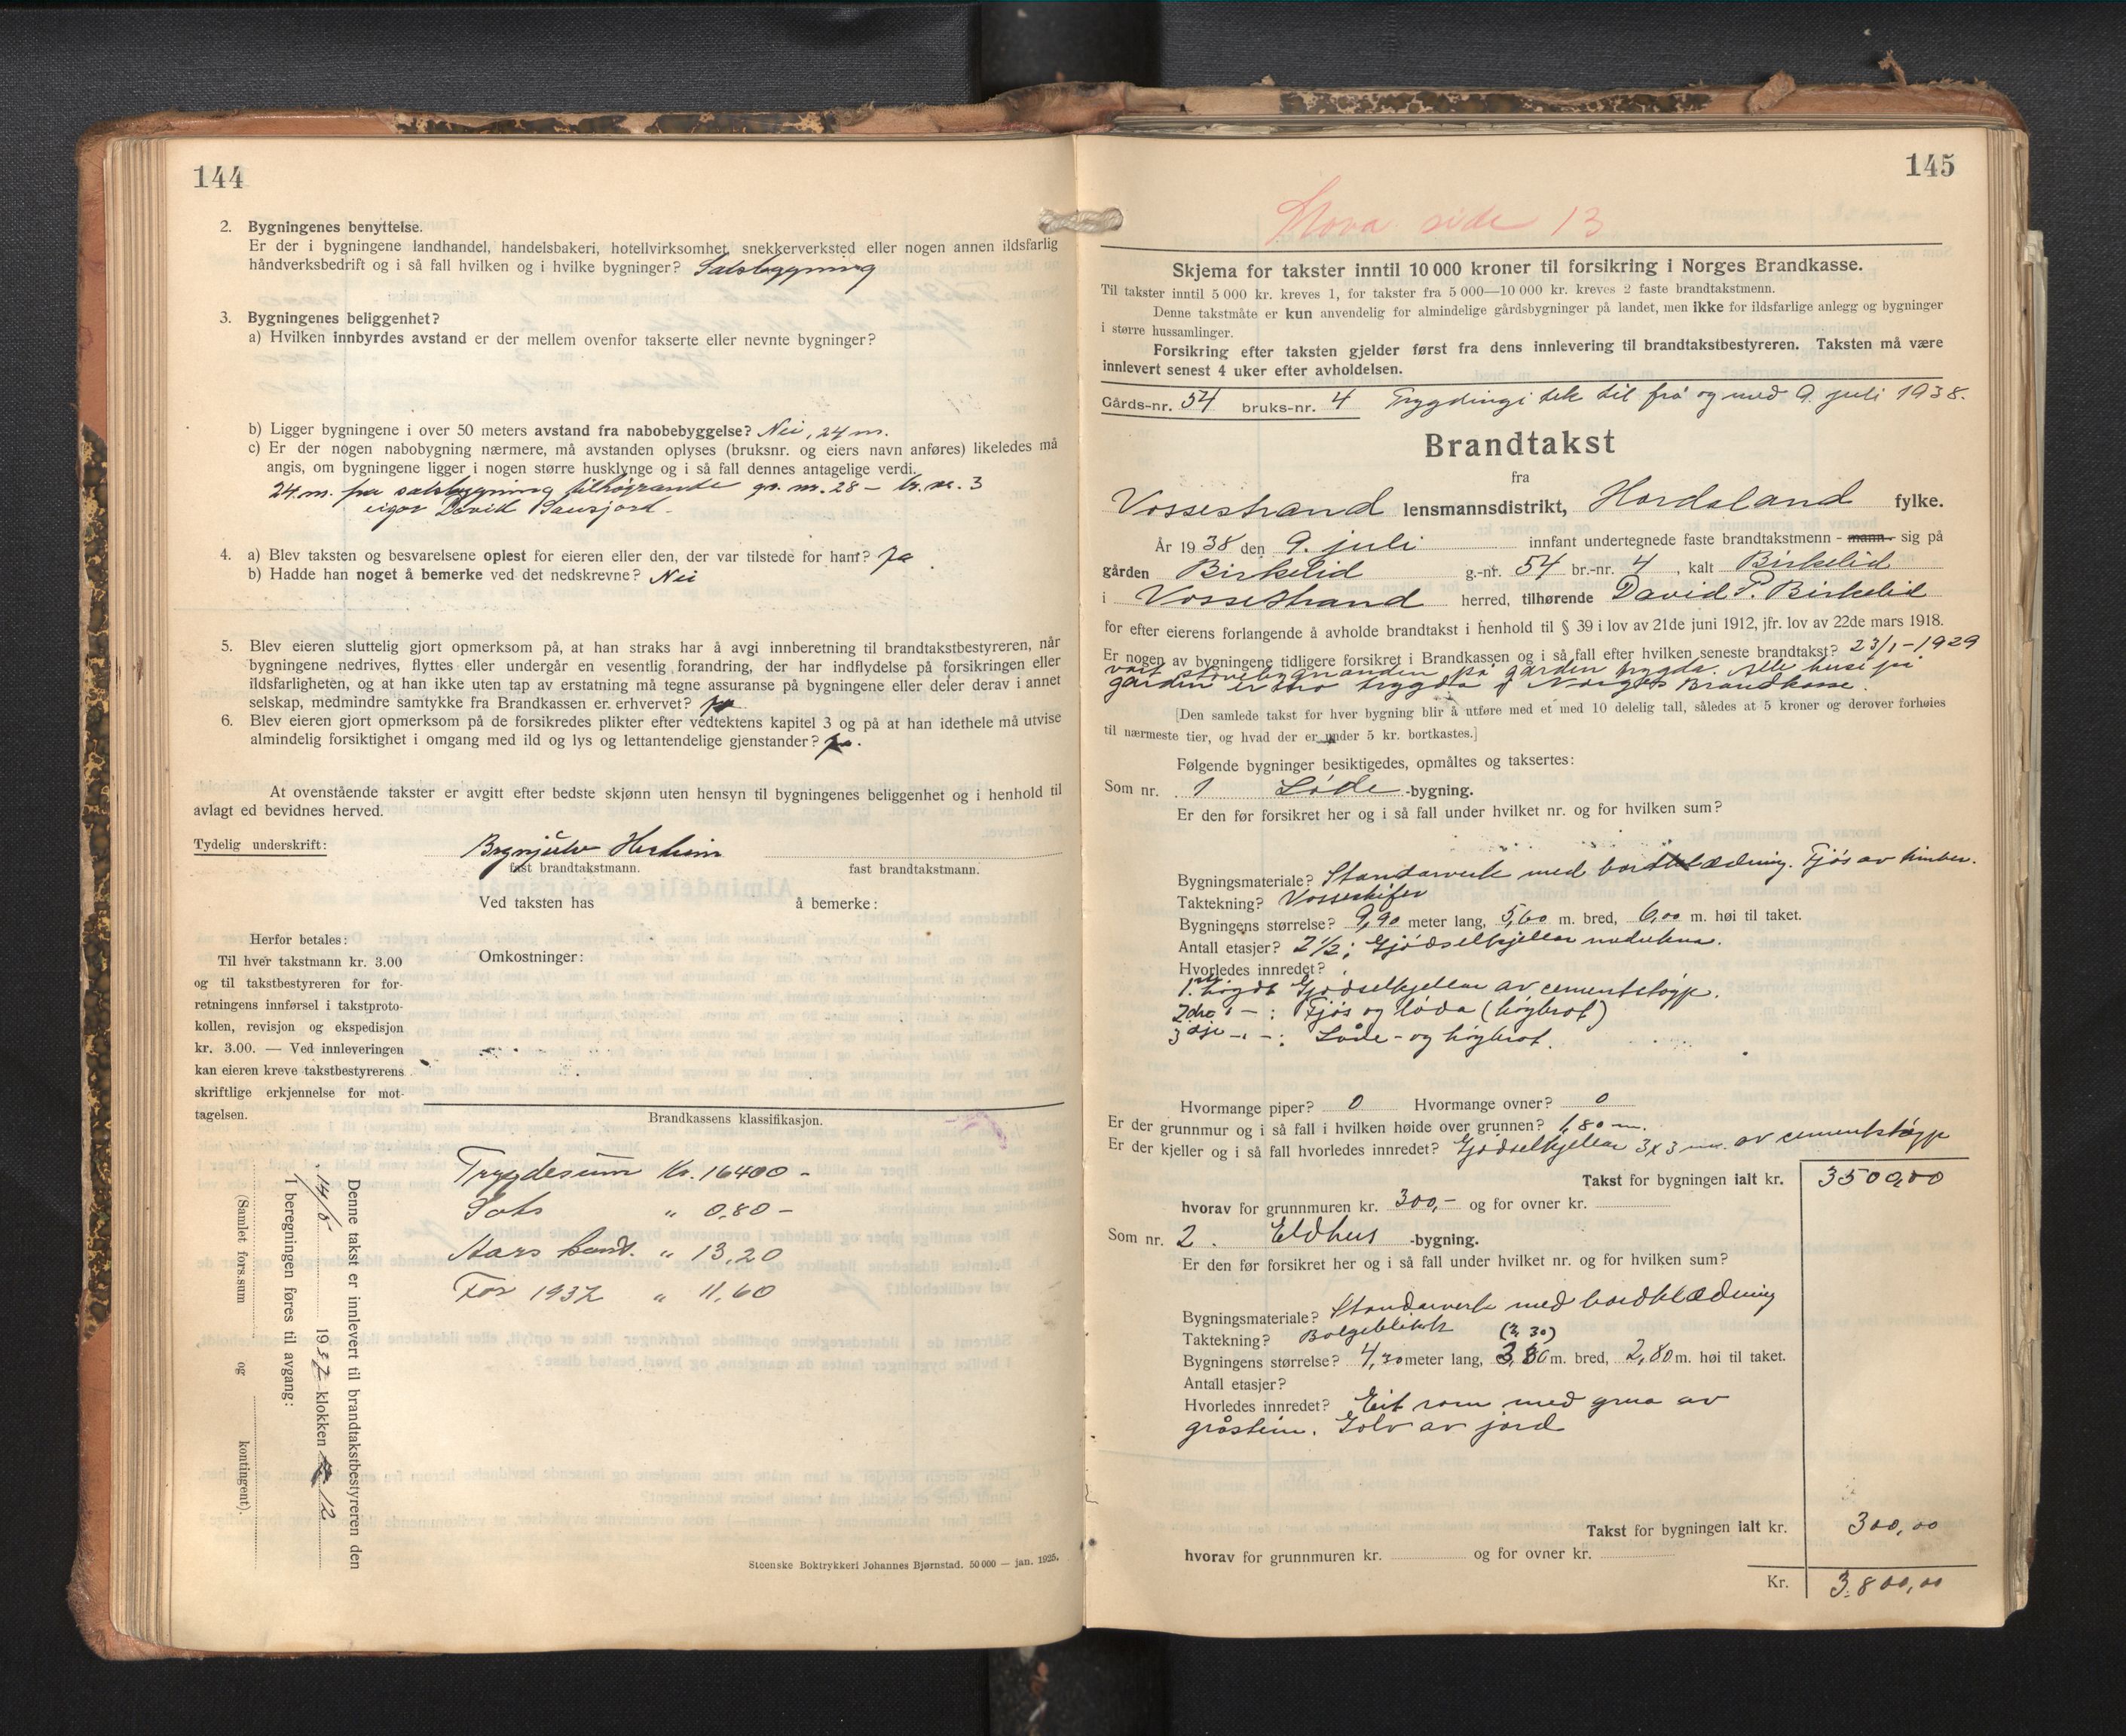 144
2. Bygningenes benyttelse.
Er der i bygningene landhandel, handelsbakeri, hotellvirksomhet, snekkerverksted eller nogen annen ildsfarlig
håndverksbedrift og i så fall hvilken og i hvilke bygninger?
3. Bygningenes beliggenhet?
a) Hvilken innbyrdes avstand er der mellem ovenfor takserte eller nevnte bygninger?
b) Ligger bygningene i over 50 meters avstand fra nabobebyggelse? Nei, 24 m.
c) Er der nogen nabobygning nærmere, må avstanden oplyses (bruksnr. og eiers navn anføres) likeledes må
angis, om bygningene ligger i nogen større husklynge og i så fall dennes antagelige verdi.
24.m. fra tilhøyrande gr. nr. 28 – br. nr. 3
eigar David
4. a) Blev taksten og besvarelsene oplest for eieren eller den, der var tilstede for ham? Ja
b) Hadde han noget å bemerke ved det nedskrevne? Nei
5. Blev eieren sluttelig gjort opmerksom på, at han straks har å avgi innberetning til brandtakstbestyreren, når
bygningene nedrives, flyttes eller undergår en vesentlig forandring, der har indflydelse på forsikringen eller
ildsfarligheten, og at han ikke uten tap av erstatning må tegne assuranse på bygningene eller deler derav i annet
selskap, medmindre samtykke fra Brandkassen er erhvervet? Ja
6. Blev eieren gjort opmerksom på de forsikredes plikter efter vedtektens kapitel 3 og på at han idethele må utvise
almindelig forsiktighet i omgang med ild og lys og lettantendelige gjenstander? Ja.
At ovenstående takster er avgitt efter bedste skjønn uten hensyn til bygningenes beliggenhet og i henhold til
avlagt ed bevidnes herved.
Tydelig underskrift: Brynjulv
fast brandtakstmann. fast brandtakstmann.
Ved taksten has å bemerke:
Herfor betales:
Til hver takstmann kr. 3.00
og til takstbestyreren for for-
retningens innførsel i takstproto-
kollen, revisjon og ekspedisjon
kr. 3.00. — Ved innleveringen
kan eieren kreve takstbestyrerens
skriftlige erkjennelse for mot-
tagelsen.
Omkostninger:
Brandkassens klassifikasjon.
Trygdesum Kr. 16400 –
Sats " 0,80 –
" 13,20
For 1937 " 11,60
Denne takst er innlevert til brandtakstbestyreren den
14/5 1937 klokken 12
I beregningen føres til avgang:
(Samlet fors.sum og kontingent).
Steenske Boktrykkeri Johannes Bjørnstad. 50 000 — jan. 1925.
145
Stova side 13
Skjema for takster inntil 10 000 kroner til forsikring i Norges Brandkasse.
Til takster inntil 5 000 kr. kreves 1, for takster fra 5 000—10 000 kr. kreves 2 faste brandtakstmenn.
Denne takstmåte er kun anvendelig for almindelige gårdsbygninger på landet, men ikke for ildsfarlige anlegg og bygninger
i større hussamlinger.
Forsikring efter taksten gjelder først fra dens innlevering til brandtakstbestyreren. Taksten må være
innlevert senest 4 uker efter avholdelsen.
Gårds-nr. 54 bruks-nr. 4 Trygdingi tek til frå og med 9. juli 1938.
Brandtakst
fra
Vossestrand lensmannsdistrikt, Hordaland fylke.
År 1938 den 9. juli innfant undertegnede faste brandtakstmenn - mann - sig på
gården Birkelid g.-nr. 54 br.-nr. 4, kalt Birkelid
i Vossestrand herred, tilhørende David P. Birkelid
for efter eierens forlangende å avholde brandtakst i henhold til § 39 i lov av 21de juni 1912, jfr. lov av 22de mars 1918.
Er nogen av bygningene tidligere forsikret i Brandkassen og i så fall efter hvilken seneste brandtakst? 23/1-1929
vart på garden trygda. Alle husi på
garden er no trygda i Norges Brandkasse.
[Den samlede takst for hver bygning blir å utføre med et med 10 delelig tall, således at 5 kroner og derover forhøies
til nærmeste tier, og hvad der er under 5 kr. bortkastes.]
Følgende bygninger besiktigedes, opmåltes og taksertes:
Som nr. 1 Løde -bygning.
Er den før forsikret her og i så fall under hvilket nr. og for hvilken sum?
Bygningsmateriale? Standarverk med bordklædning. Fjøs av timber.
Taktekning? Vosseskifer
Bygningens størrelse? 9,90 meter lang, 5,60 m. bred, 6,00 m. høi til taket.
Antall etasjer? 2 1/2; Gjødselkjellar
Hvorledes innredet?
1ste høgda Gjødselkjellar av cementstøyp.
2dre " – : Fjøs og løda (høybrot)
3dje – " – : Løde- og høybrot.
Hvormange piper? 0 Hvormange ovner? 0
Er der grunnmur og i så fall i hvilken høide over grunnen? 1,80 m.
Er der kjeller og i så fall hvorledes innredet? Gjødselkjellar 3x3 m. av cementstøyp
Takst for bygningen ialt kr. 3500,00
hvorav for grunnmuren kr. 300,- og for ovner kr.
Som nr. 2. Eldhus -bygning.
Er den før forsikret her og i så fall under hvilket nr. og for hvilken sum?
Bygningsmateriale? Standarverk med bordklædning
Taktekning? Bølgeblikk (3,30)
Bygningens størrelse? 4,20 meter lang, 3,80 m. bred, 2,80 m. høi til taket.
Antall etasjer?
Hvorledes innredet? Eit rom med grua av
gråstein. Golv av jord
Takst for bygningen ialt kr. 300,00
hvorav for grunnmuren kr. og for ovner kr.
Kr. 3.800,00